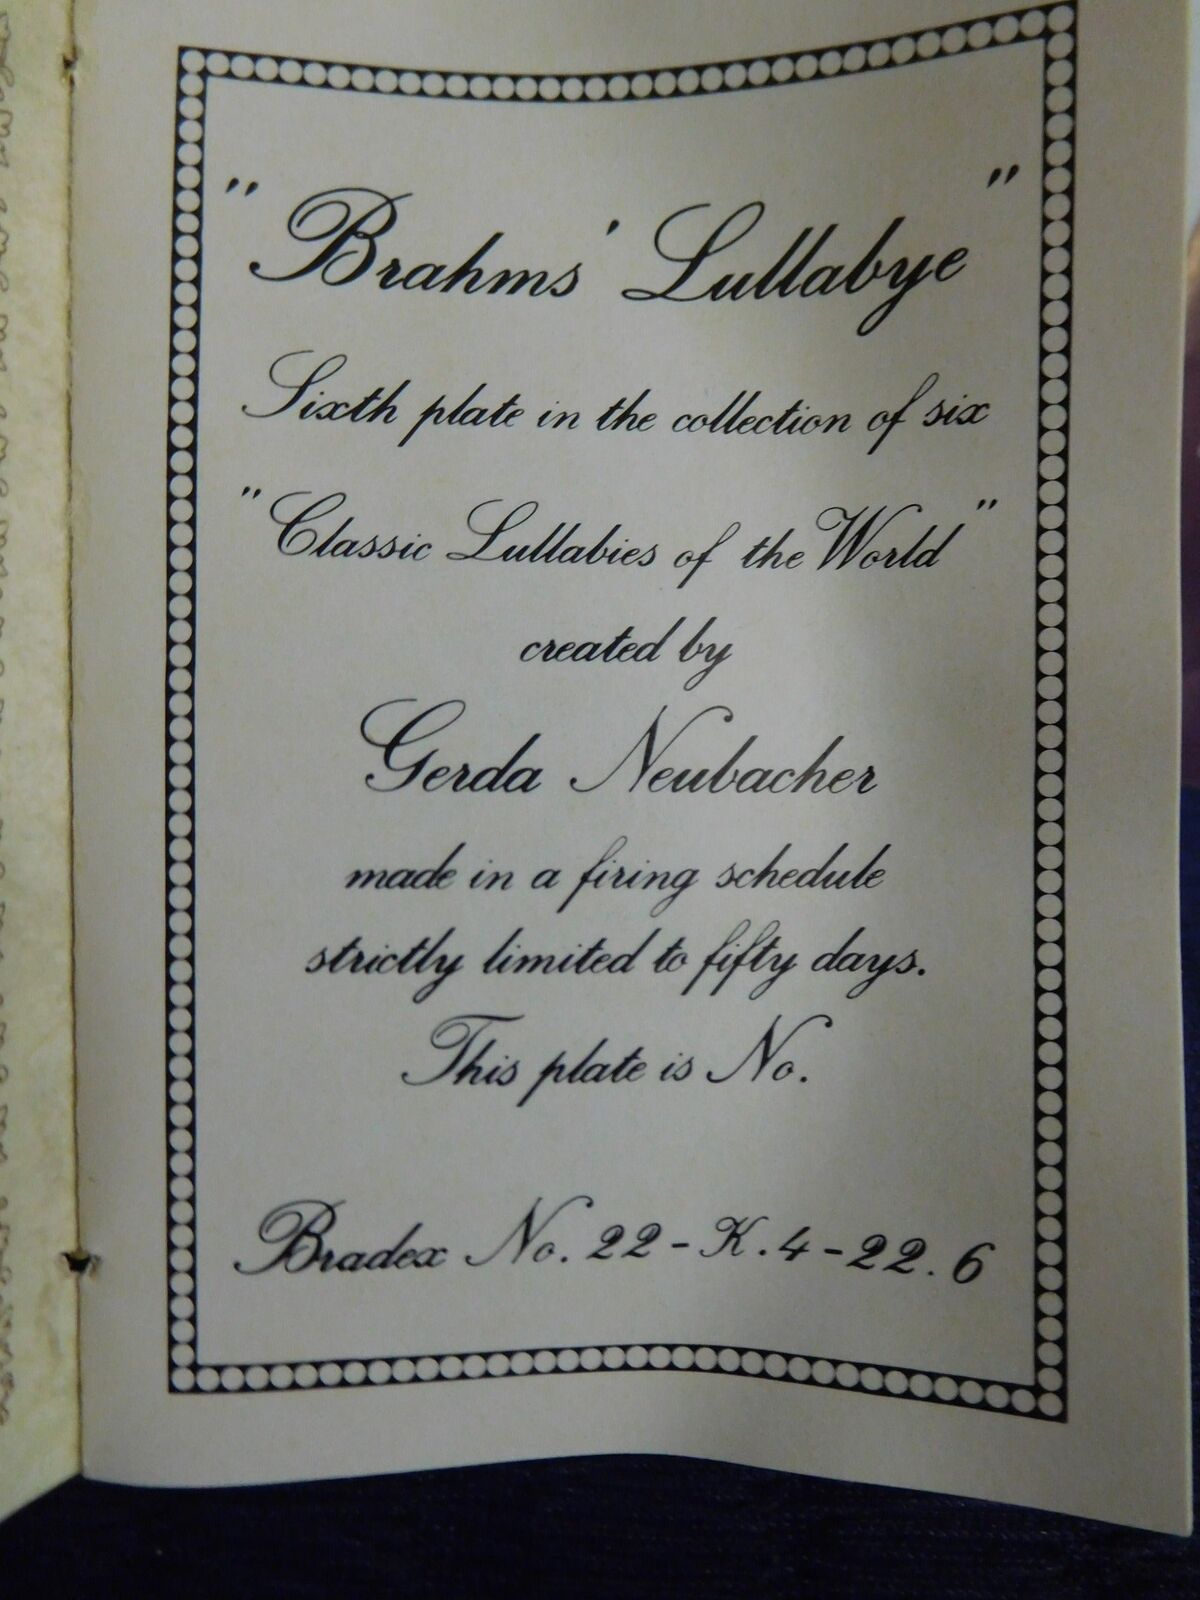 "Brahms' Lullabye"
Sixth plate in the collection of six
"Classic Lullabies of the World"
created by
Gerda Neubacher
made in a firing schedule
strictly limited to fifty days.
This plate is No.
Bradex No. 22-K.4-22.6